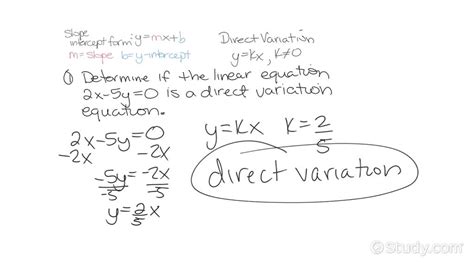 Slope
intercept form: y=mx+b
m=slope b=y-intercept
Direct Variation
y=kx, k≠0
① Determine if the linear equation
2x-5y=0 is a direct variation
equation.
2x-5y=0
-2x -2x
-5y=-2x
-5 -5
y=2/5 x
y=kx k=2/5
direct variation
Study.com